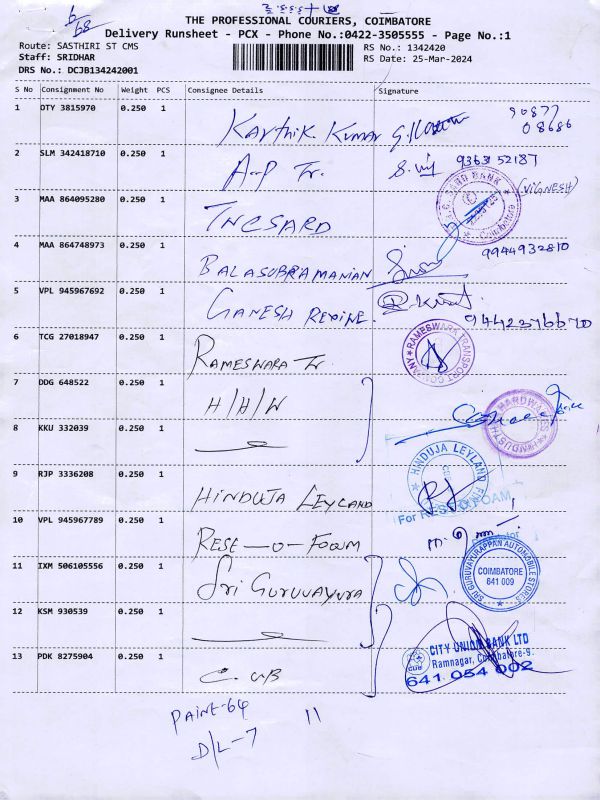 6/68
THE PROFESSIONAL COURIERS, COIMBATORE
Delivery Runsheet - PCX - Phone No.:0422-3505555 - Page No.:1
Route: SASTHIRI ST CMS
RS No.: 1342420
Staff: SRIDHAR
RS Date: 25-Mar-2024
DRS No.: DCJB134242001
S No Consignment No Weight PCS Consignee Details Signature
1 OTY 3815970 0.250 1 Karthik. Kumar 90877 08686
2 SLM 342418710 0.250 1 A-P Tr. 9363152187
(VIGNESH)
3 MAA 864095280 0.250 1 TNCSARD
BANK Coimbatore
4 MAA 864748973 0.250 1 BALASUBRAMANIAN 9944932810
5 VPL 945967692 0.250 1 GANESH REXINE. 9442376670
6 TCG 27018947 0.250 1 RAMESWARA Tr.
RAMESWARA TRANSPORT COMPANY
7 DDG 648522 0.250 1 H/H/W
HARDWARES
8 KKU 332039 0.250 1
HINDUJA LEYLAND
9 RJP 3336208 0.250 1 HINDUJA LEYLAND
For REST O FOAM
10 VPL 945967789 0.250 1 RESE-O-FOAM
11 IXM 506105556 0.250 1 SRI GURUVAYURA
SRI GURUVAYURAPPAN AUTOMOBILE STORES
COIMBATORE
641 009
12 KSM 930539 0.250 1
CITY UNION BANK LTD
Ramnagar, Coimbatore-9.
CUB
641 054 002
13 PDK 8275904 0.250 1 C.UB
PAINE-64
D/L-7 11